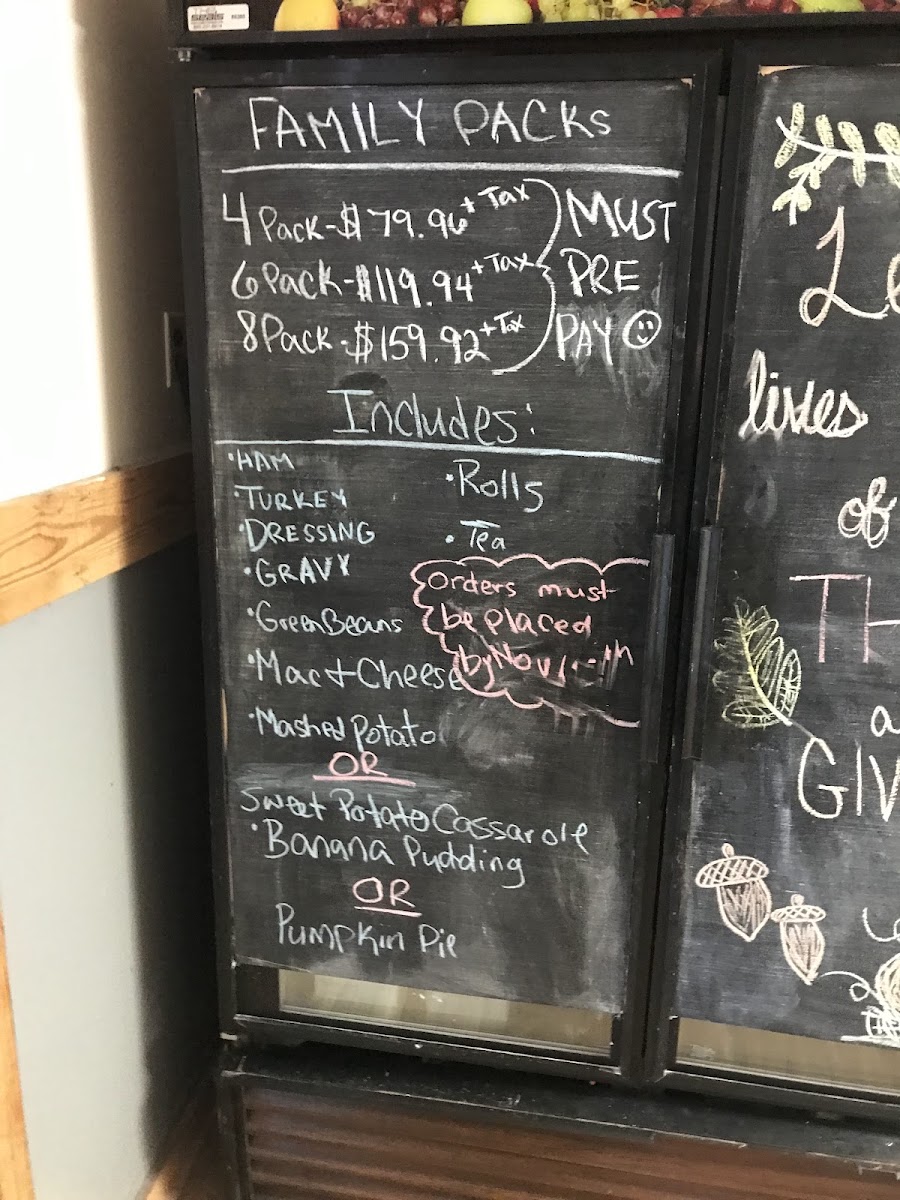 FAMILY PACKS
4 Pack - $79.96 + Tax
6 Pack - $119.94 + Tax
8 Pack - $159.92 + Tax
MUST
PRE
PAY
Includes:
• HAM
• TURKEY
• DRESSING
• GRAVY
• Green Beans
• Mac + Cheese
• Mashed Potato
OR
Sweet Potato Cassarole
• Banana Pudding
OR
Pumpkin Pie
• Rolls
• Tea
Orders must
be placed
by Nov
lives
of
GIV